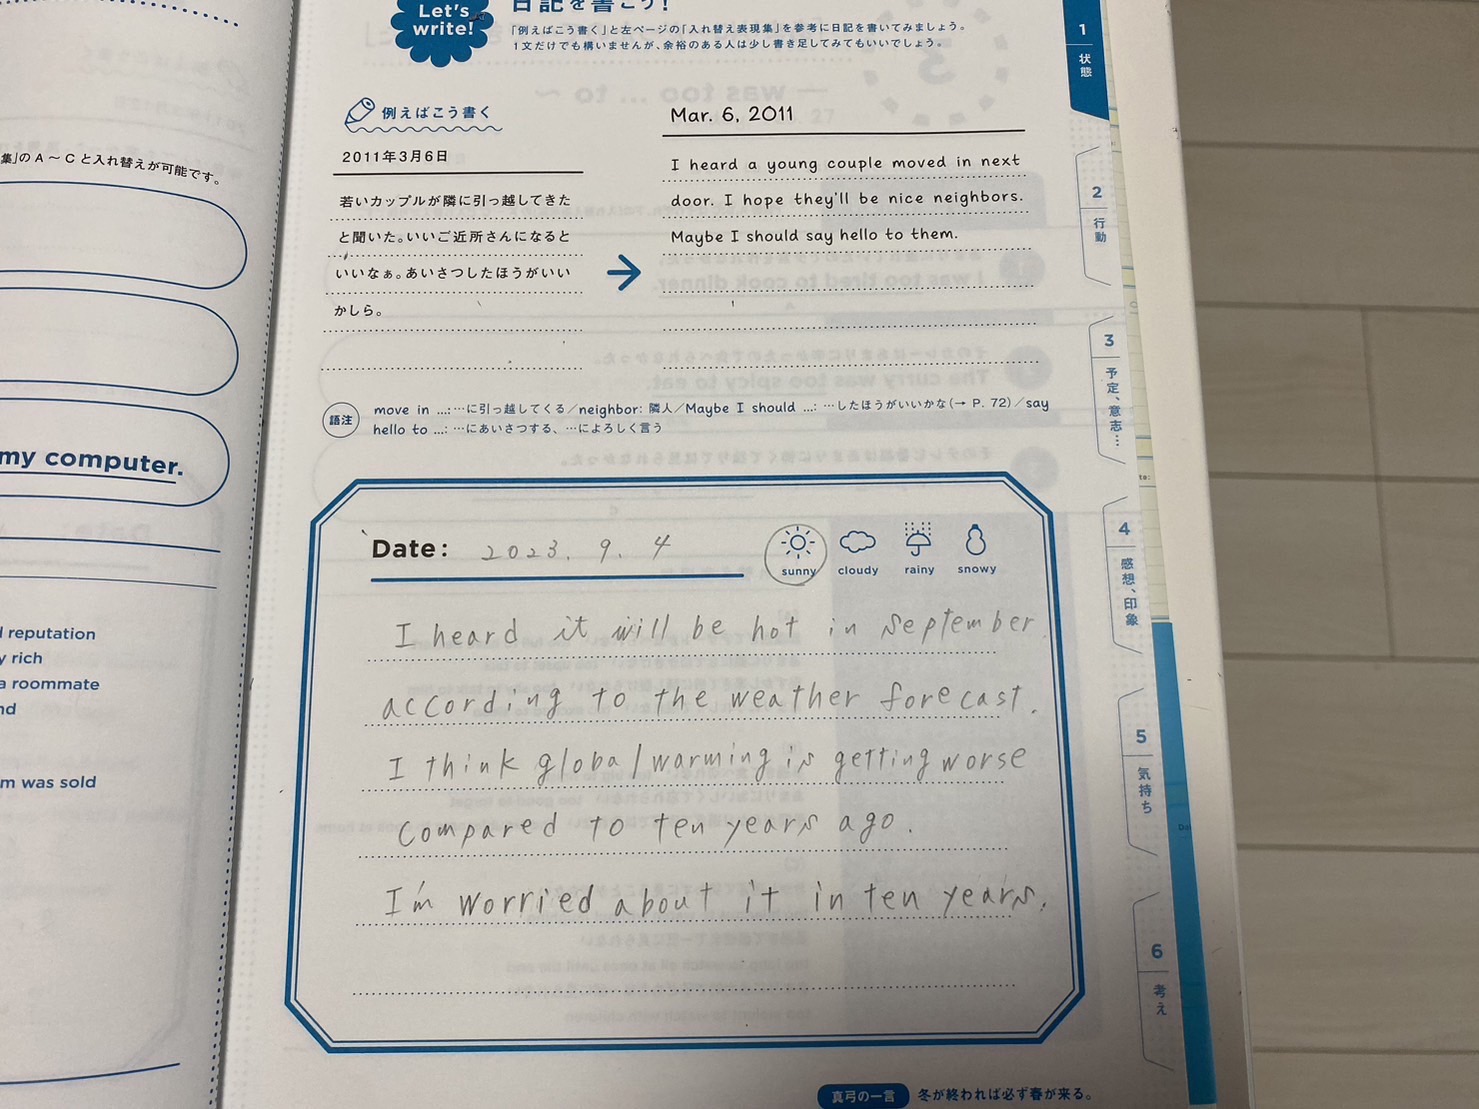 Let's
write!
日記を書こう!
「例えばこう書く」と左ページの「入れ替え表現集」を参考に日記を書いてみましょう。
1文だけでも構いませんが、余裕のある人は少し書き足してみてもいいでしょう。
例えばこう書く
2011年3月6日
若いカップルが隣に引っ越してきた
と聞いた。いいご近所さんになると
いいなぁ。あいさつしたほうがいい
かしら。
Mar. 6, 2011
I heard a young couple moved in next
door. I hope they'll be nice neighbors.
Maybe I should say hello to them.
語注
move in ...: …に引っ越してくる/neighbor: 隣人/Maybe I should ...: …したほうがいいかな(→ P. 72)/say
hello to ...: …にあいさつする、…によろしく言う
Date: 2023. 9. 4
sunny cloudy rainy snowy
I heard it will be hot in September
according to the weather forecast.
I think global warming is getting worse
compared to ten years ago.
I'm worried about it in ten years.
真弓の一言 冬が終われば必ず春が来る。
1 状態
2 行動
3 予定、意志…
4 感想、印象
5 気持ち
6 考え
集」のA～Cと入れ替えが可能です。
my computer.
reputation
rich
a roommate
was sold